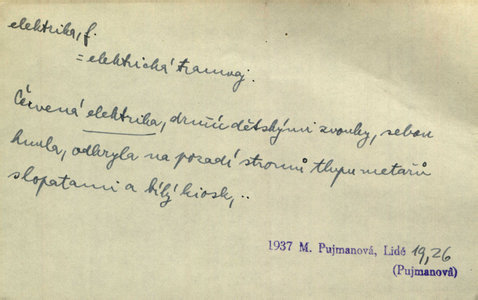 elektrika, f.
= elektrická tramvaj.
Červená elektrika, drnčíc dětskými zvonky, sebou
hnula, odkryla na pozadí stromů tlupu metařů
s lopatami a bílý kiosk,..
1937 M. Pujmanová, Lidé 19,26
(Pujmanová)